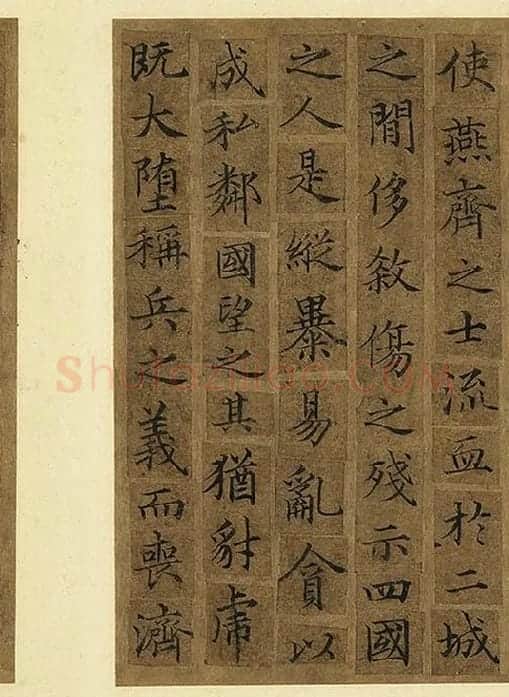 使燕齊之士流血於二城
之間侈敘傷之殘示四國
之人是縱暴易亂貪以
成私鄰國望之其猶豺虎
既大堕稱兵之義而喪濟